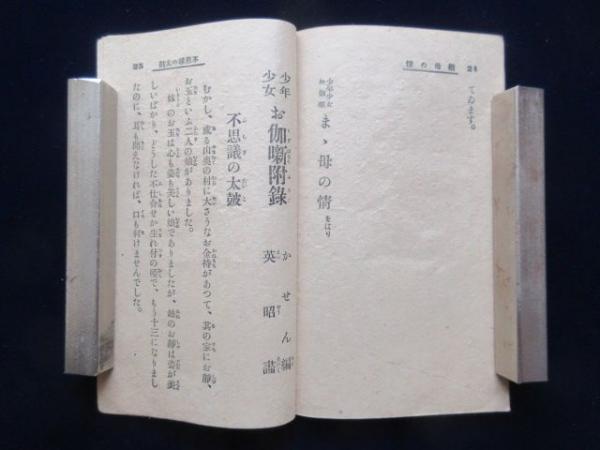 てゐます。
少年少女
お伽噺 まゝ母の情 をはり
少年
少女 お伽噺附録
かせん編
英昭畫
不思議の太鼓
むかし、或る山奥の村に大さうなお金持があつて、其の家にお靜、
お玉といふ二人の娘がありました。
妹のお玉は心も姿も美しい娘でありましたが、姉のお靜は姿が美
しいばかり、どうした不仕合せか生れ付の唖で、もう十三になりまし
たのに、耳も聞えなければ、口も利けませんでした。